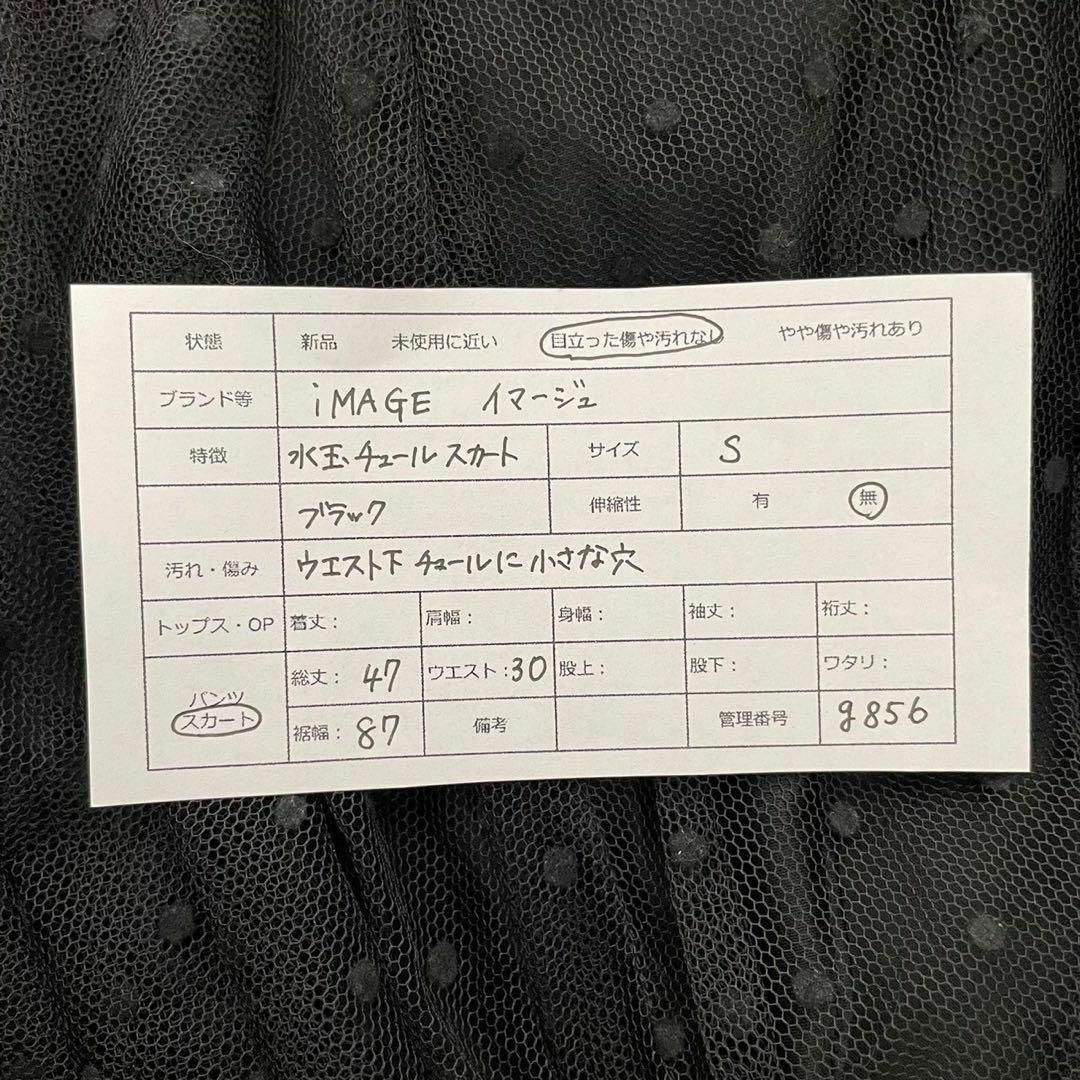 状態 新品 未使用に近い 目立った傷や汚れなし やや傷や汚れあり
ブランド等 iMAGE イマージュ
特徴 水玉チュールスカート サイズ S
ブラック 伸縮性 有 無
汚れ・傷み ウエスト下 チュールに小さな穴
トップス・OP 着丈: 肩幅: 身幅: 袖丈: 裄丈:
パンツ
スカート
総丈: 47 ウエスト:30 股上: 股下: ワタリ:
裾幅: 87 備考 管理番号 g856